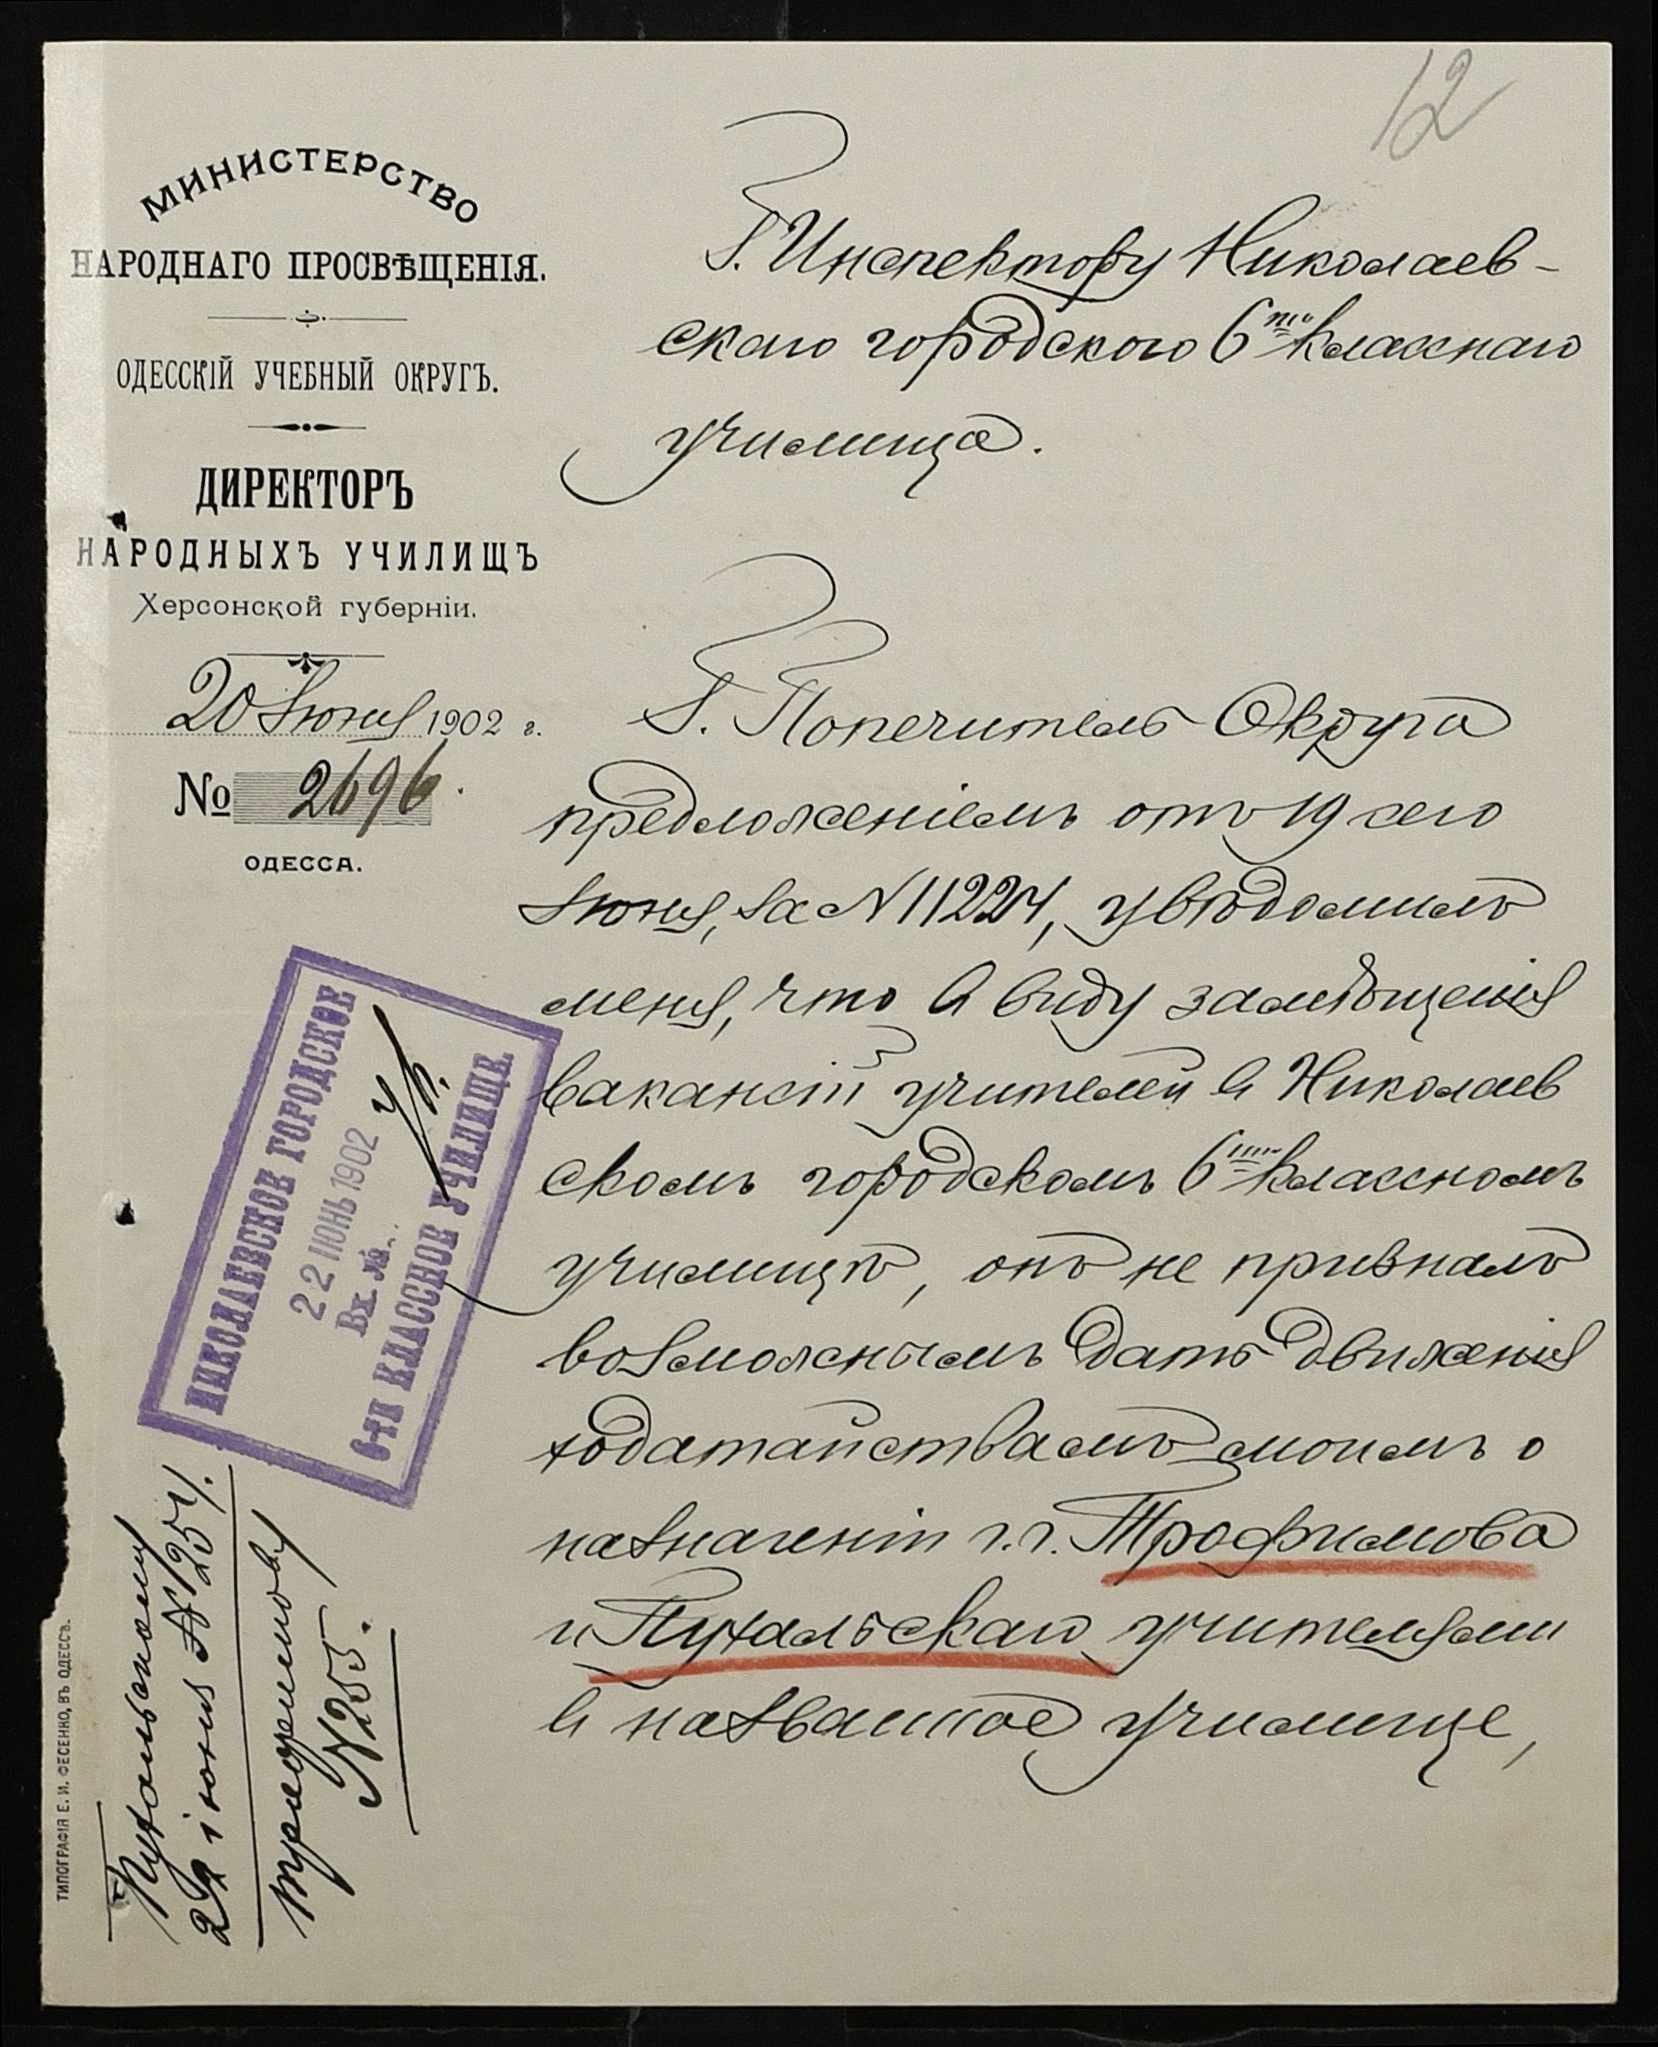 12
МИНИСТЕРСТВО
НАРОДНАГО ПРОСВѢЩЕНІЯ.
ОДЕССКІЙ УЧЕБНЫЙ ОКРУГЪ.
ДИРЕКТОРЪ
НАРОДНЫХЪ УЧИЛИЩЪ
Херсонской губерніи.
20 Іюня 1902 г.
№ 2696.
ОДЕССА.
Г. Инспектору Николаев-
скаго городского 6ти класснаго
училища.
Г. Попечитель Округа
предложеніемъ отъ 19 сего
Іюня, за N 11224, увѣдомилъ
меня, что в виду замѣщенія
вакансій учителей в Николаев
скомъ городскомъ 6ти классномъ
училищѣ, онъ не призналъ
возможнымъ дать движенія
ходатайствамъ моимъ о
назначеніи г.г. Трофимова
и Пухальскаго учителями
в названное училище,
НИКОЛАЕВСКОЕ ГОРОДСКОЕ
22 ІЮНЬ 1902
Вх. №
6-ТИ КЛАССНОЕ УЧИЛИЩЕ.
Пухальскому
22 іюня N 254.
Трофимову
N 255.
ТИПОГРАФІЯ Е. И. ФЕСЕНКО, ВЪ ОДЕССѢ.